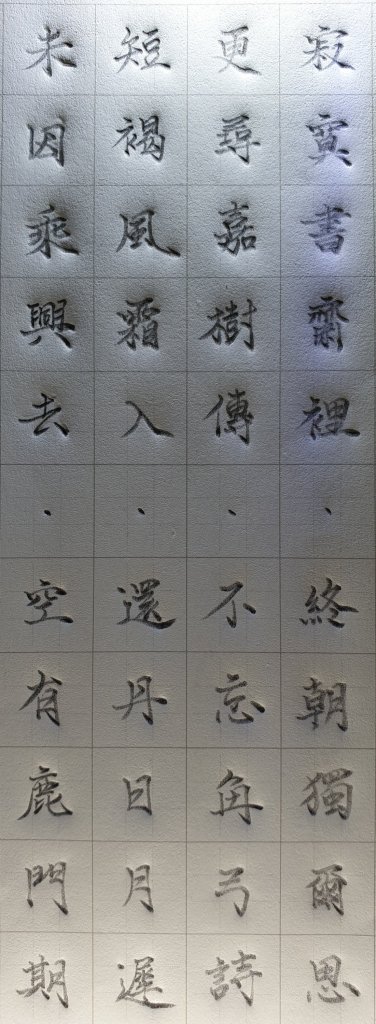 寂寞書齋裡・終朝獨爾思
更尋嘉樹傳・不忘角弓詩
短褐風霜入・還丹日月遲
未因乘興去・空有鹿門期